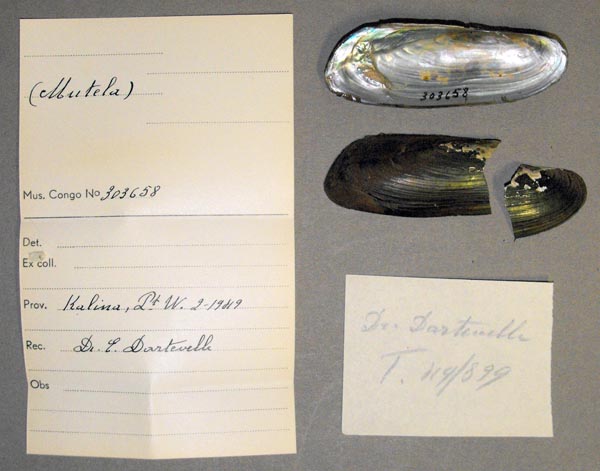 (Mutela)
Mus. Congo No 303658
Det.
Ex coll.
Prov. Kalina, Pt W. 2-1949
Rec. Dr. E. Dartevelle
Obs
303658
Dr. Dartevelle
T. 49/899